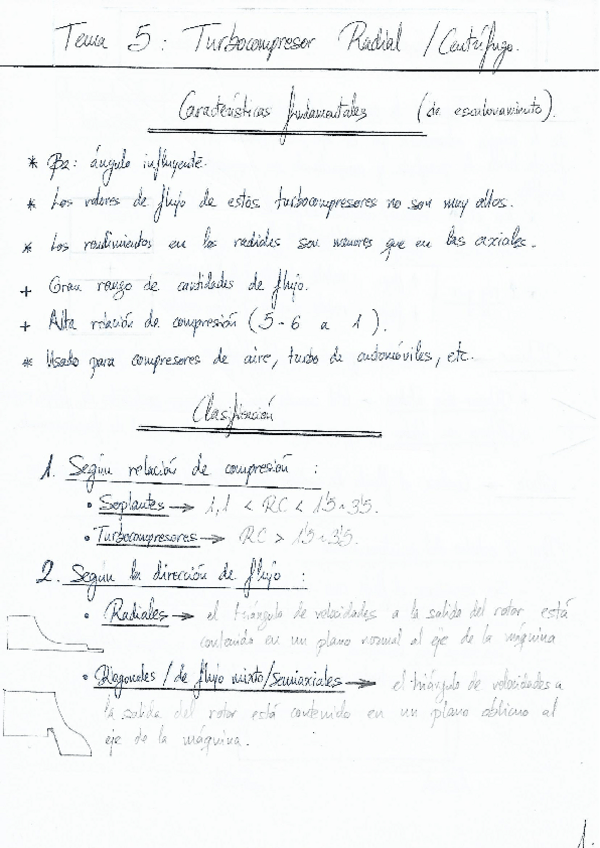 Tema 5: Turbocompresor Radial / Centrífugo.
Características fundamentales (de escalonamiento).
* β2: ángulo influyente.
* Los valores de flujo de estos turbocompresores no son muy altos.
* Los rendimientos en los radiales son menores que en las axiales.
+ Gran rango de cantidades de flujo.
+ Alta relación de compresión (5-6 a 1).
* Usado para compresores de aire, turbo de automóviles, etc.
Clasificación
1. Según relación de compresión:
• Soplantes → 1,1 < RC < 1'5~3'5.
• Turbocompresores → RC > 1'5~3'5.
2. Según la dirección de flujo:
• Radiales → el triángulo de velocidades a la salida del rotor está
contenido en un plano normal al eje de la máquina
• Diagonales / de flujo mixto/semiaxiales → el triángulo de velocidades a
la salida del rotor está contenido en un plano oblicuo al
eje de la máquina.
1.